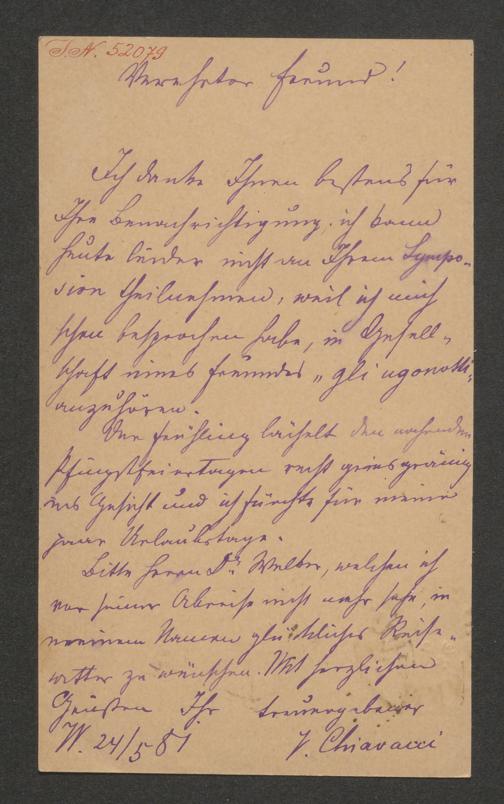 I.N. 52079
Verehrter Freund!
Ich danke Ihnen bestens für
Ihre Benachrichtigung, ich kann
heute leider nicht an Ihrem Sympo-
sion theilnehmen, weil ich mich
schon besprochen habe, in Gesell-
schaft eines Freundes "gli ugonotti"
anzuhören.
Der Frühling lächelt den nahenden
Pfingstfeiertagen recht griesgrämig
ins Gesicht und ich fürchte für meine
paar Urlaubstage.
Bitte Herrn Dr. Welber, welchen ich
vor seiner Abreise nicht mehr sehe, in
meinem Namen glückliches Reise-
wetter zu wünschen. Mit herzlichen
Grüßen Ihr treuergebener
W. 24/5 81 V. Chiavacci